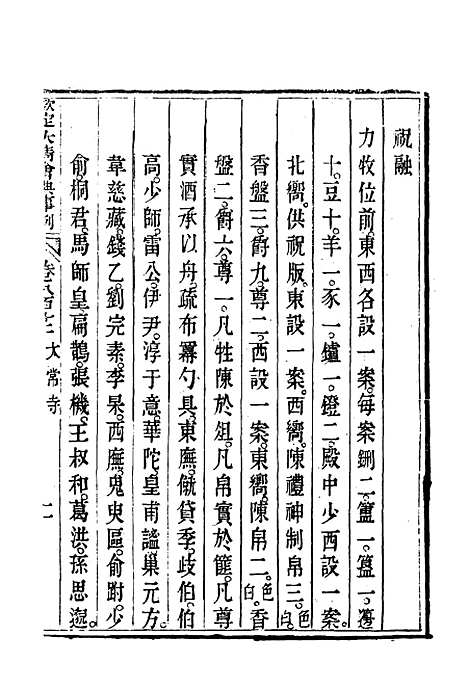 祝融
力牧位前東西各設一案每案鉶二簠一簋一籩
十豆十羊一豕一鑪一鐙二殿中少西設一案
北嚮供祝版東設一案西嚮陳禮神制帛三色白
香盤三爵九尊二西設一案東嚮陳帛二色白香
盤二爵六尊一凡牲陳於俎凡帛實於篚凡尊
實酒承以舟疏布冪勺具東廡僦貸季岐伯伯
高少師雷公伊尹淳于意華陀皇甫謐巢元方
韋慈藏錢乙劉完素李杲西廡鬼臾區俞跗少
俞桐君馬師皇扁鵲張機王叔和葛洪孫思邈
欽定大清會典事例 卷 太常寺